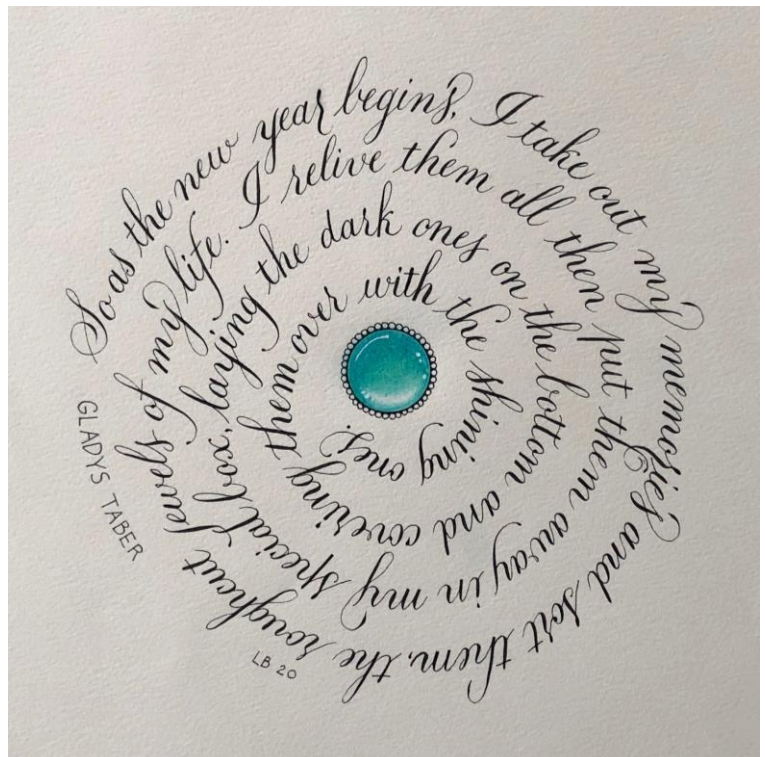 So as the new year begins, I take out my memories and sort them, the roughcut Jewels of my life. I relive them all then put them away in my special box, laying the dark ones on the bottom and covering them over with the shining ones.
GLADYS TABER
LB 20